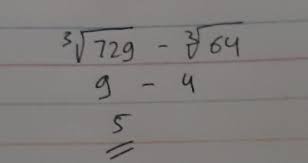 ∛729 - ∛64
9 - 4
5